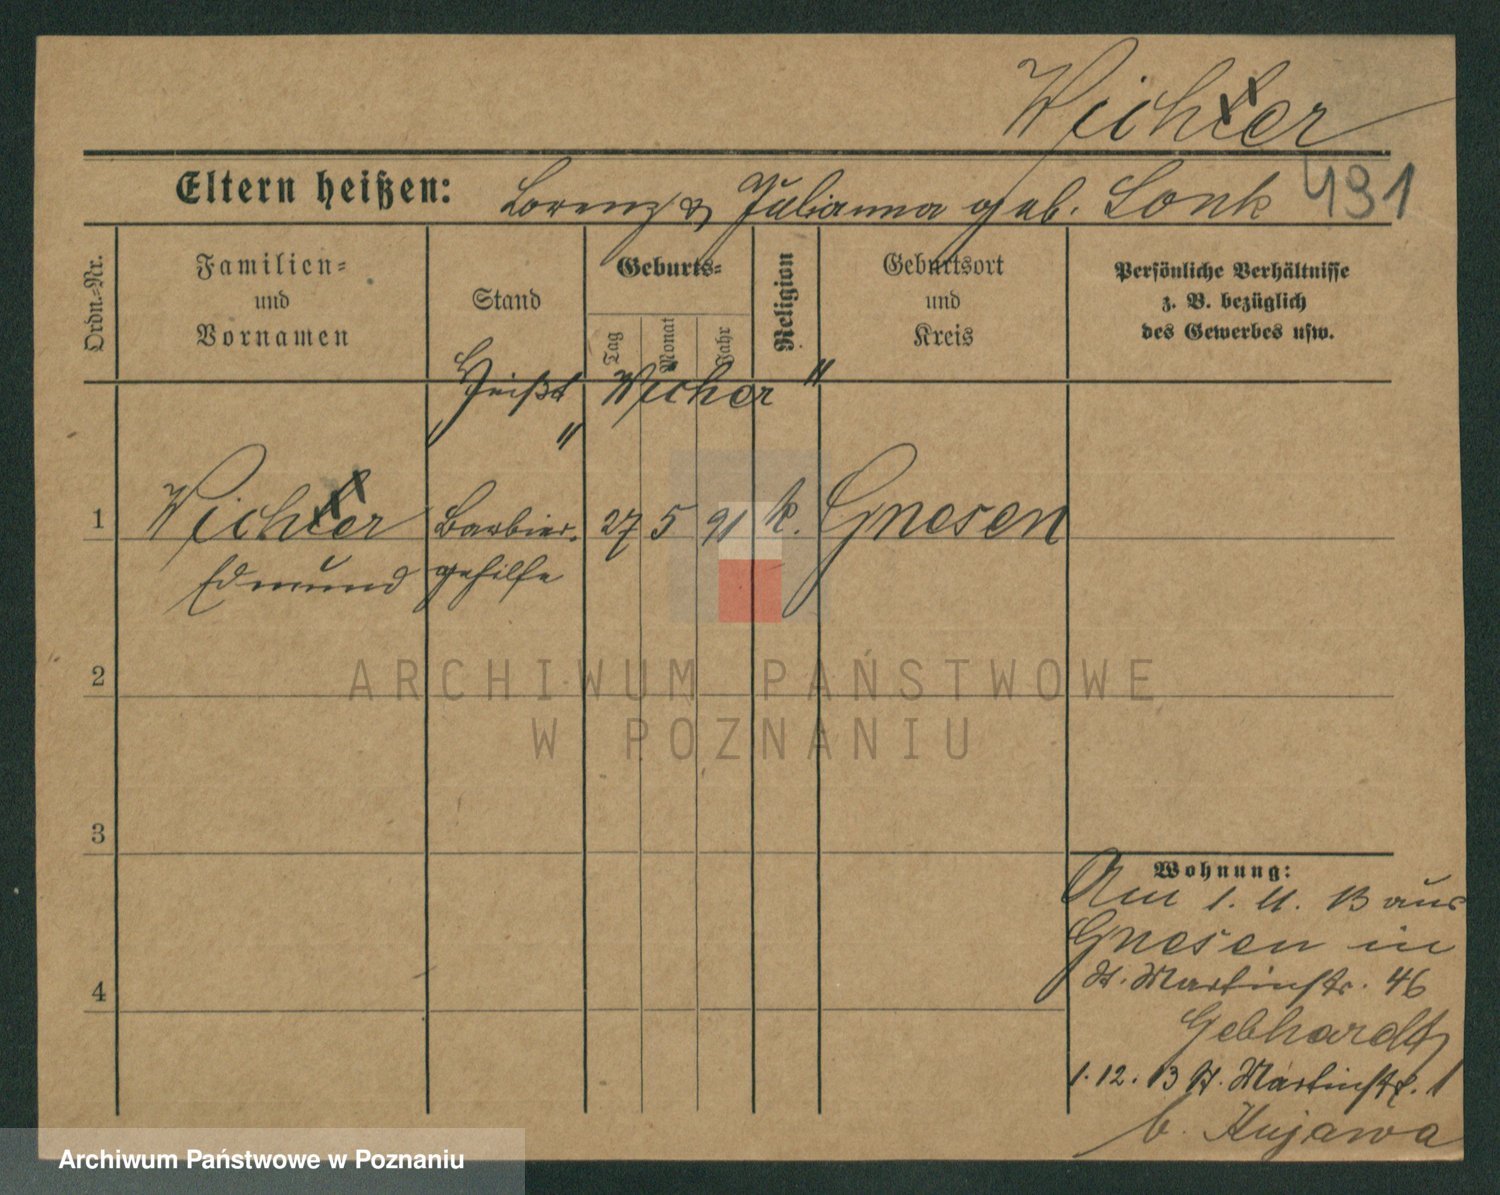 Wichter
Eltern heißen: Lorenz & Julianna geb. Lonk 491
Ordn.=Nr.
Familien=
und
Vornamen
Stand
Geburts=
Tag
Monat
Jahr
Religion
Geburtsort
und
Kreis
Persönliche Verhältnisse
z. B. bezüglich
des Gewerbes usw.
Heißt „Wicher"
1 Wichter Barbier- 27 5 91 k. Gnesen
Edmund gehilfe
2
3
4
Wohnung:
Am 1. 11. 13 aus
Gnesen in
St. Martinstr. 46
Gebhardt
1.12.13 St. Martinstr. 1
b. Kujawa
ARCHIWUM PAŃSTWOWE
W POZNANIU
Archiwum Państwowe w Poznaniu